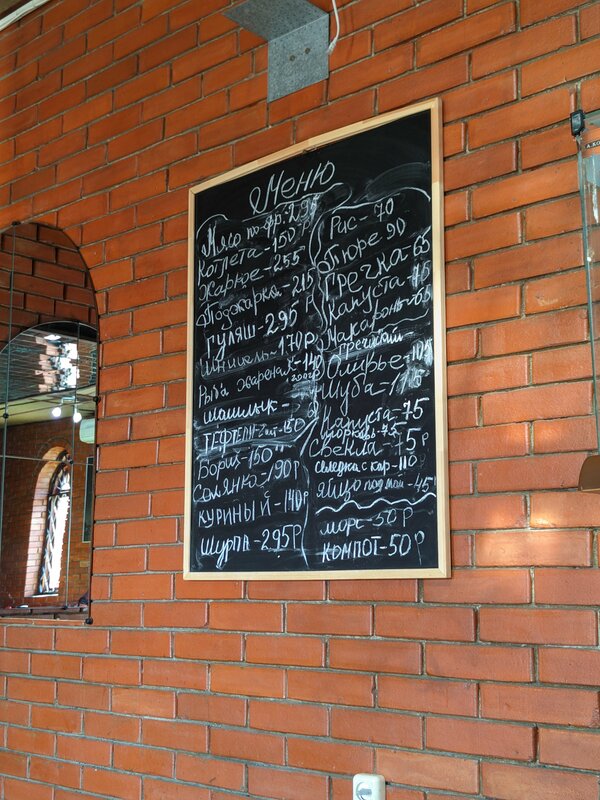 Меню
Мясо по-фр.-295
Котлета-150р
Жаркое-255
Поджарка-215
Гуляш-295 р
Шницель-170р
Рыба жареная-140
(100г)
Шашлык-
Тефтели-2шт-150
Борщ-150
Солянка-190р
Куриный-140р
Шурпа-295р
Рис-70
Пюре 90
Гречка-65
Капуста-75
Макароны-65
Греческий-
Оливье-
Шуба-
Капуста-75
Морковь-75
Свекла-75р
Селедка с кар-110р
Яйцо под май-45
морс-50р
компот-50р